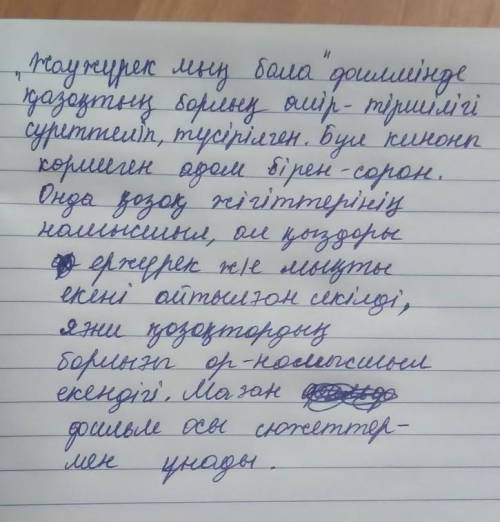 "Жаужүрек мың бала" филмінде
қазақтың барлық өмір-тіршілігі
суреттеліп, түсірілген. Бұл кинони
көрмеген адам бірен-саран.
Онда қазақ жігіттерінің
намысшыл, ал қыздары
ержүрек ж/е мықты
екені айтылған секілді,
яғни қазақтардың
барлығы ар-намысшыл
екендігі. Маған
фильм осы сюжеттер-
мен ұнады.